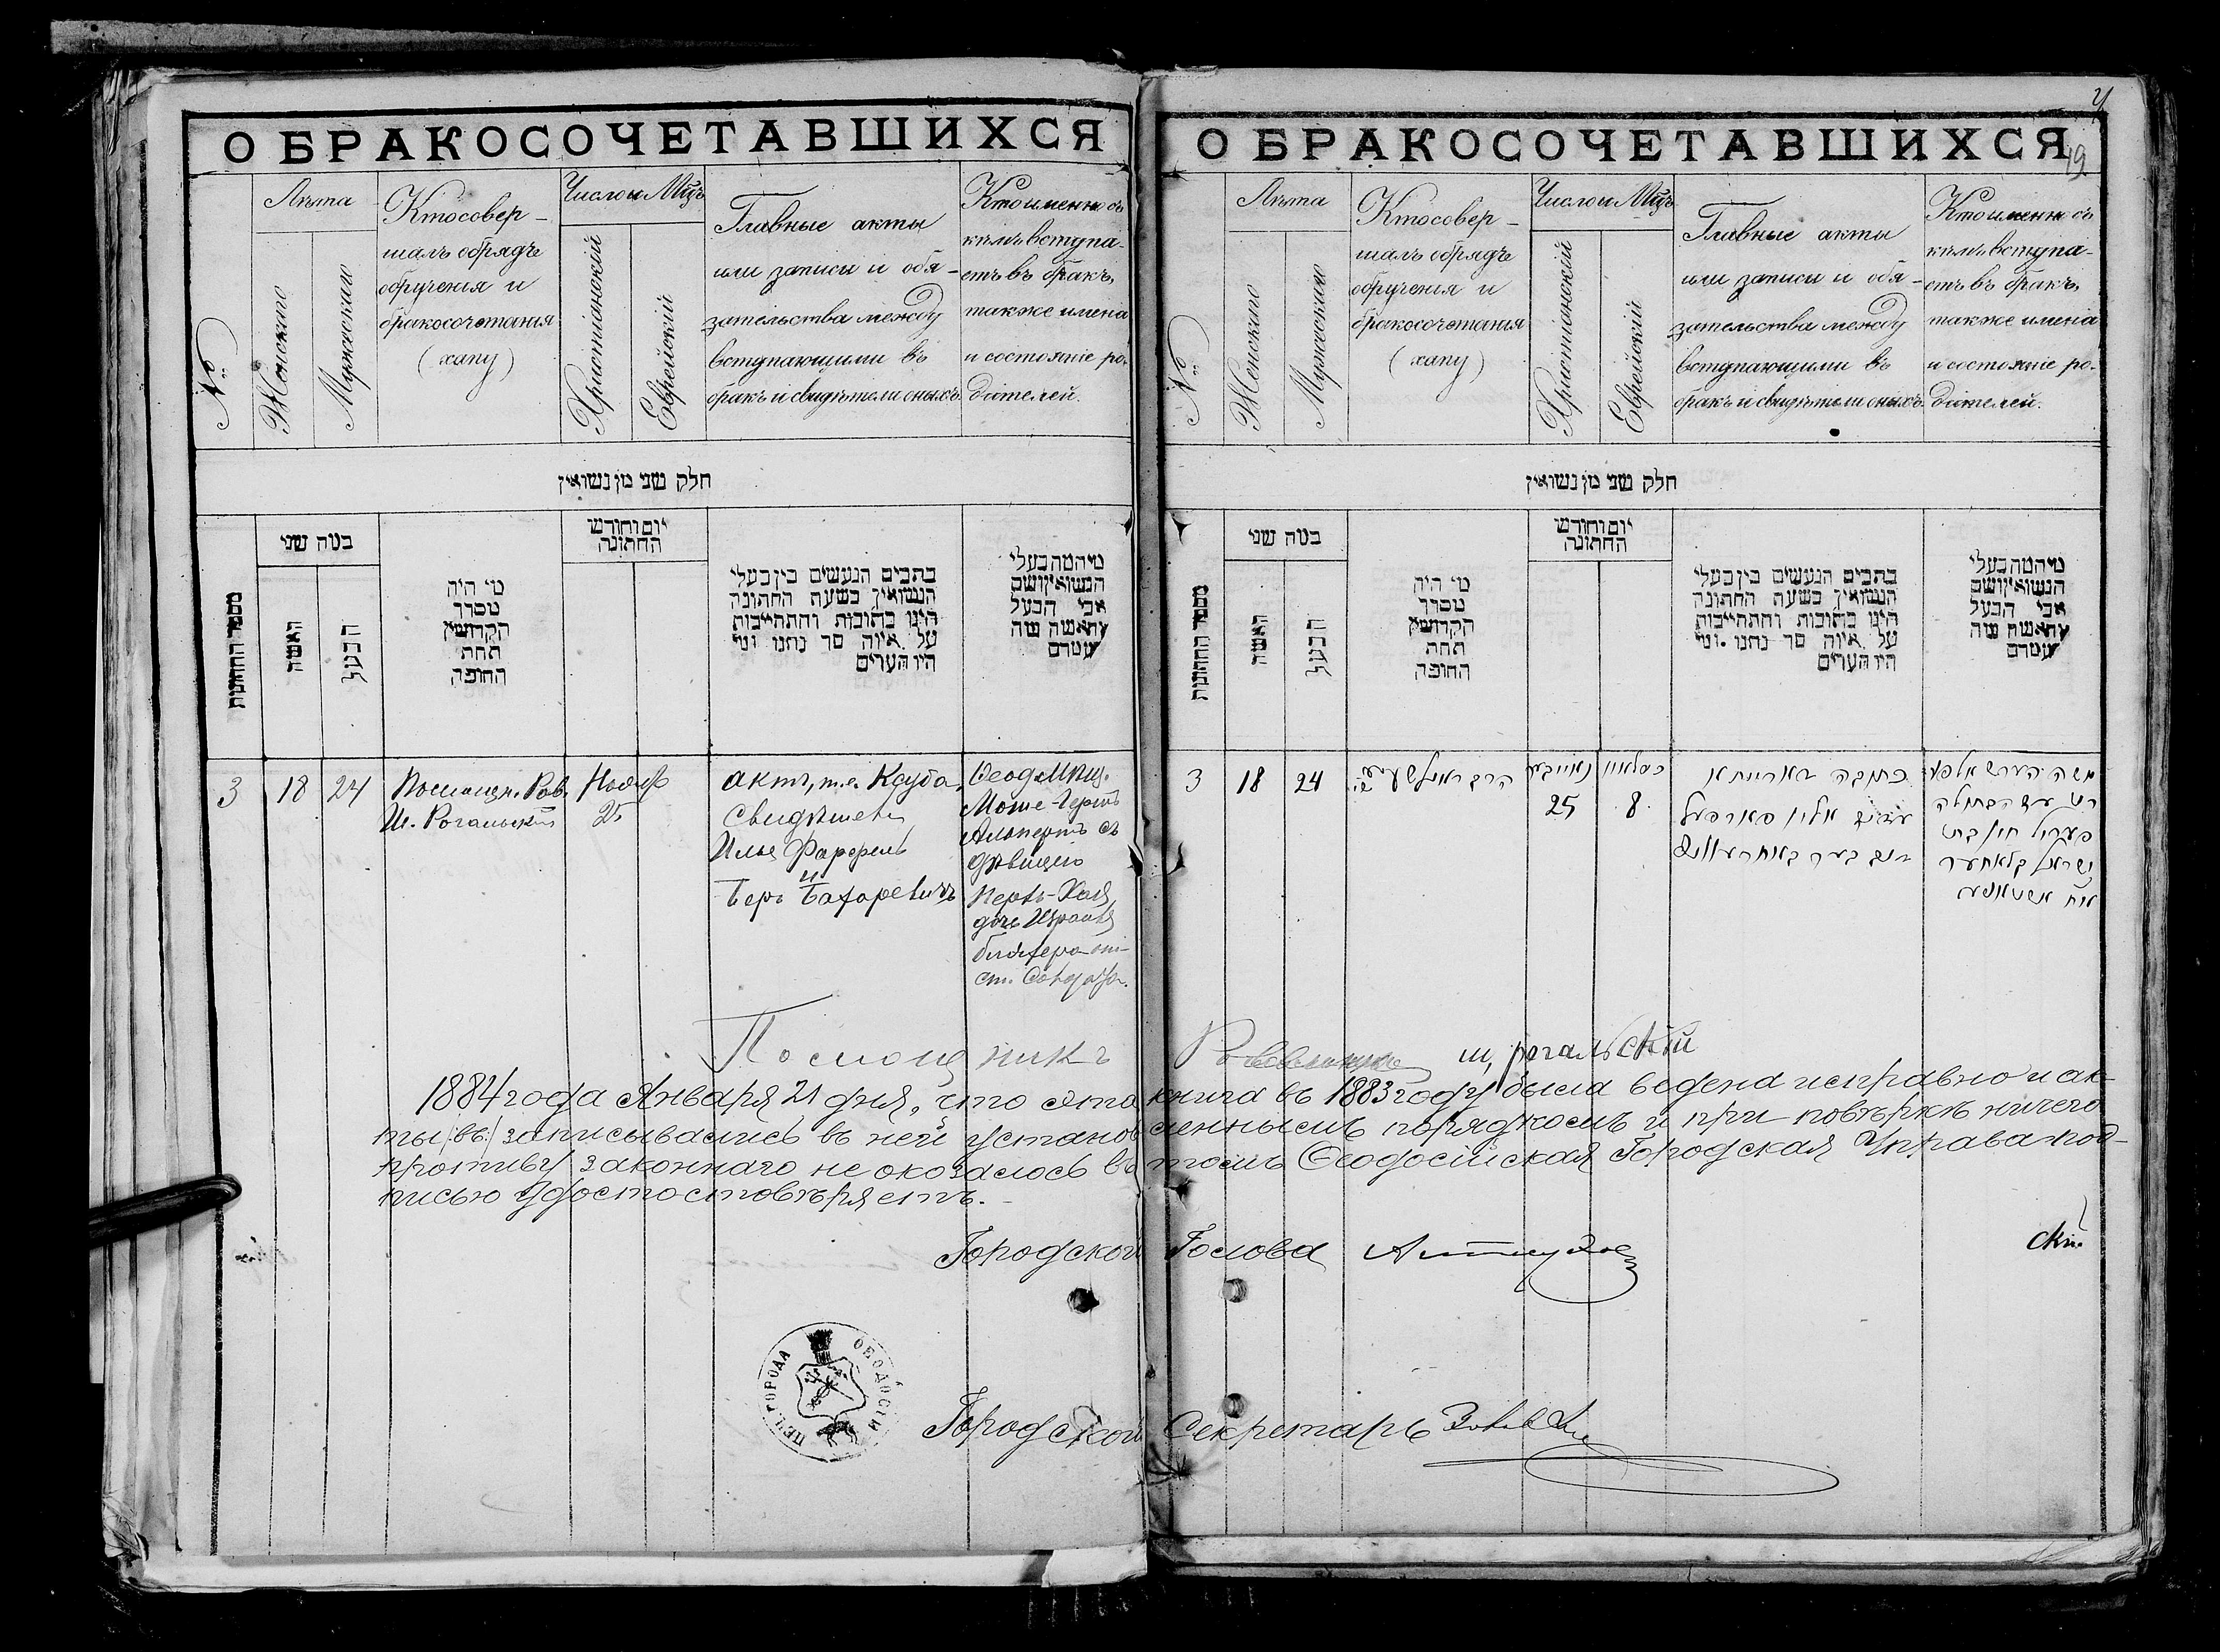 О БРАКОСОЧЕТАВШИХСЯ
№
Лѣта
Женскаго
Мужескаго
Кто совер-
шалъ обрядъ
обрученія и
бракосочетанія
(хапу)
Число и Мѣцъ
Христіанскій
Еврейскій
Главные акты
или записи и обя-
зательства между
вступающими въ
бракъ и свидѣтели оныхъ.
Кто именно съ
кѣмъ вступа-
етъ въ бракъ,
также имена
и состояніе ро-
дителей.
חלק שני מן נשואין
מספר החתונות
כמה שני
האשה
הבעל
מי היה
מסדר
הקדושין
תחת
החופה
יום וחודש
החתונה
כתבים הנעשים בין בעלי
הנשואין בשעת החתונה
היינו כתובות והתחייבות
על איזה סך נתנו ומי
היו העדים
מי המה בעלי
הנשואין ושם
אבי הבעל
והאשה
3
18
24
Помощн. Рав.
Ш. Рогальскій
Ноябр
25
актъ, т.е. Ксуба,
Свидѣтели
Илья Фарфель
и
Беръ Бахаревичъ
Ѳеод. Мѣщ.
Моше-Гершъ
Альпертъ съ
дѣвицею
Перль-Хая,
дочь Израиля
О БРАКОСОЧЕТАВШИХСЯ
19
№
Лѣта
Женскаго
Мужескаго
Кто совер-
шалъ обрядъ
обрученія и
бракосочетанія
(хапу)
Число и Мѣцъ
Христіанскій
Еврейскій
Главные акты
или записи и обя-
зательства между
вступающими въ
бракъ и свидѣтели оныхъ.
Кто именно съ
кѣмъ вступа-
етъ въ бракъ,
также имена
и состояніе ро-
дителей.
חלק שני מן נשואין
מספר החתונות
כמה שני
האשה
הבעל
מי היה
מסדר
הקדושין
תחת
החופה
יום וחודש
החתונה
כתבים הנעשים בין בעלי
הנשואין בשעת החתונה
היינו כתובות והתחייבות
על איזה סך נתנו ומי
היו העדים
מי המה בעלי
הנשואין ושם
אבי הבעל
והאשה
3
18
24
25
8
כתובה דאורייתא
משה הערש
עם הבתולה
פערל חיה בת
ישראל
Помощникъ Раввина Ш, Рогальскій
1884 года Января 21 дня, что эта книга въ 1883 году была ведена исправно и ак-
ты /:въ:/ записывались въ ней установленнымъ порядкомъ и при повѣркѣ ничего
противу законнаго не оказалось въ томъ Ѳеодосійская Городская Управа под-
писью удостостовѣряетъ.
Городской Голова
скій
ПЕЧ. ГОРОДА ѲЕОДОСІИ
Городской Секретарь